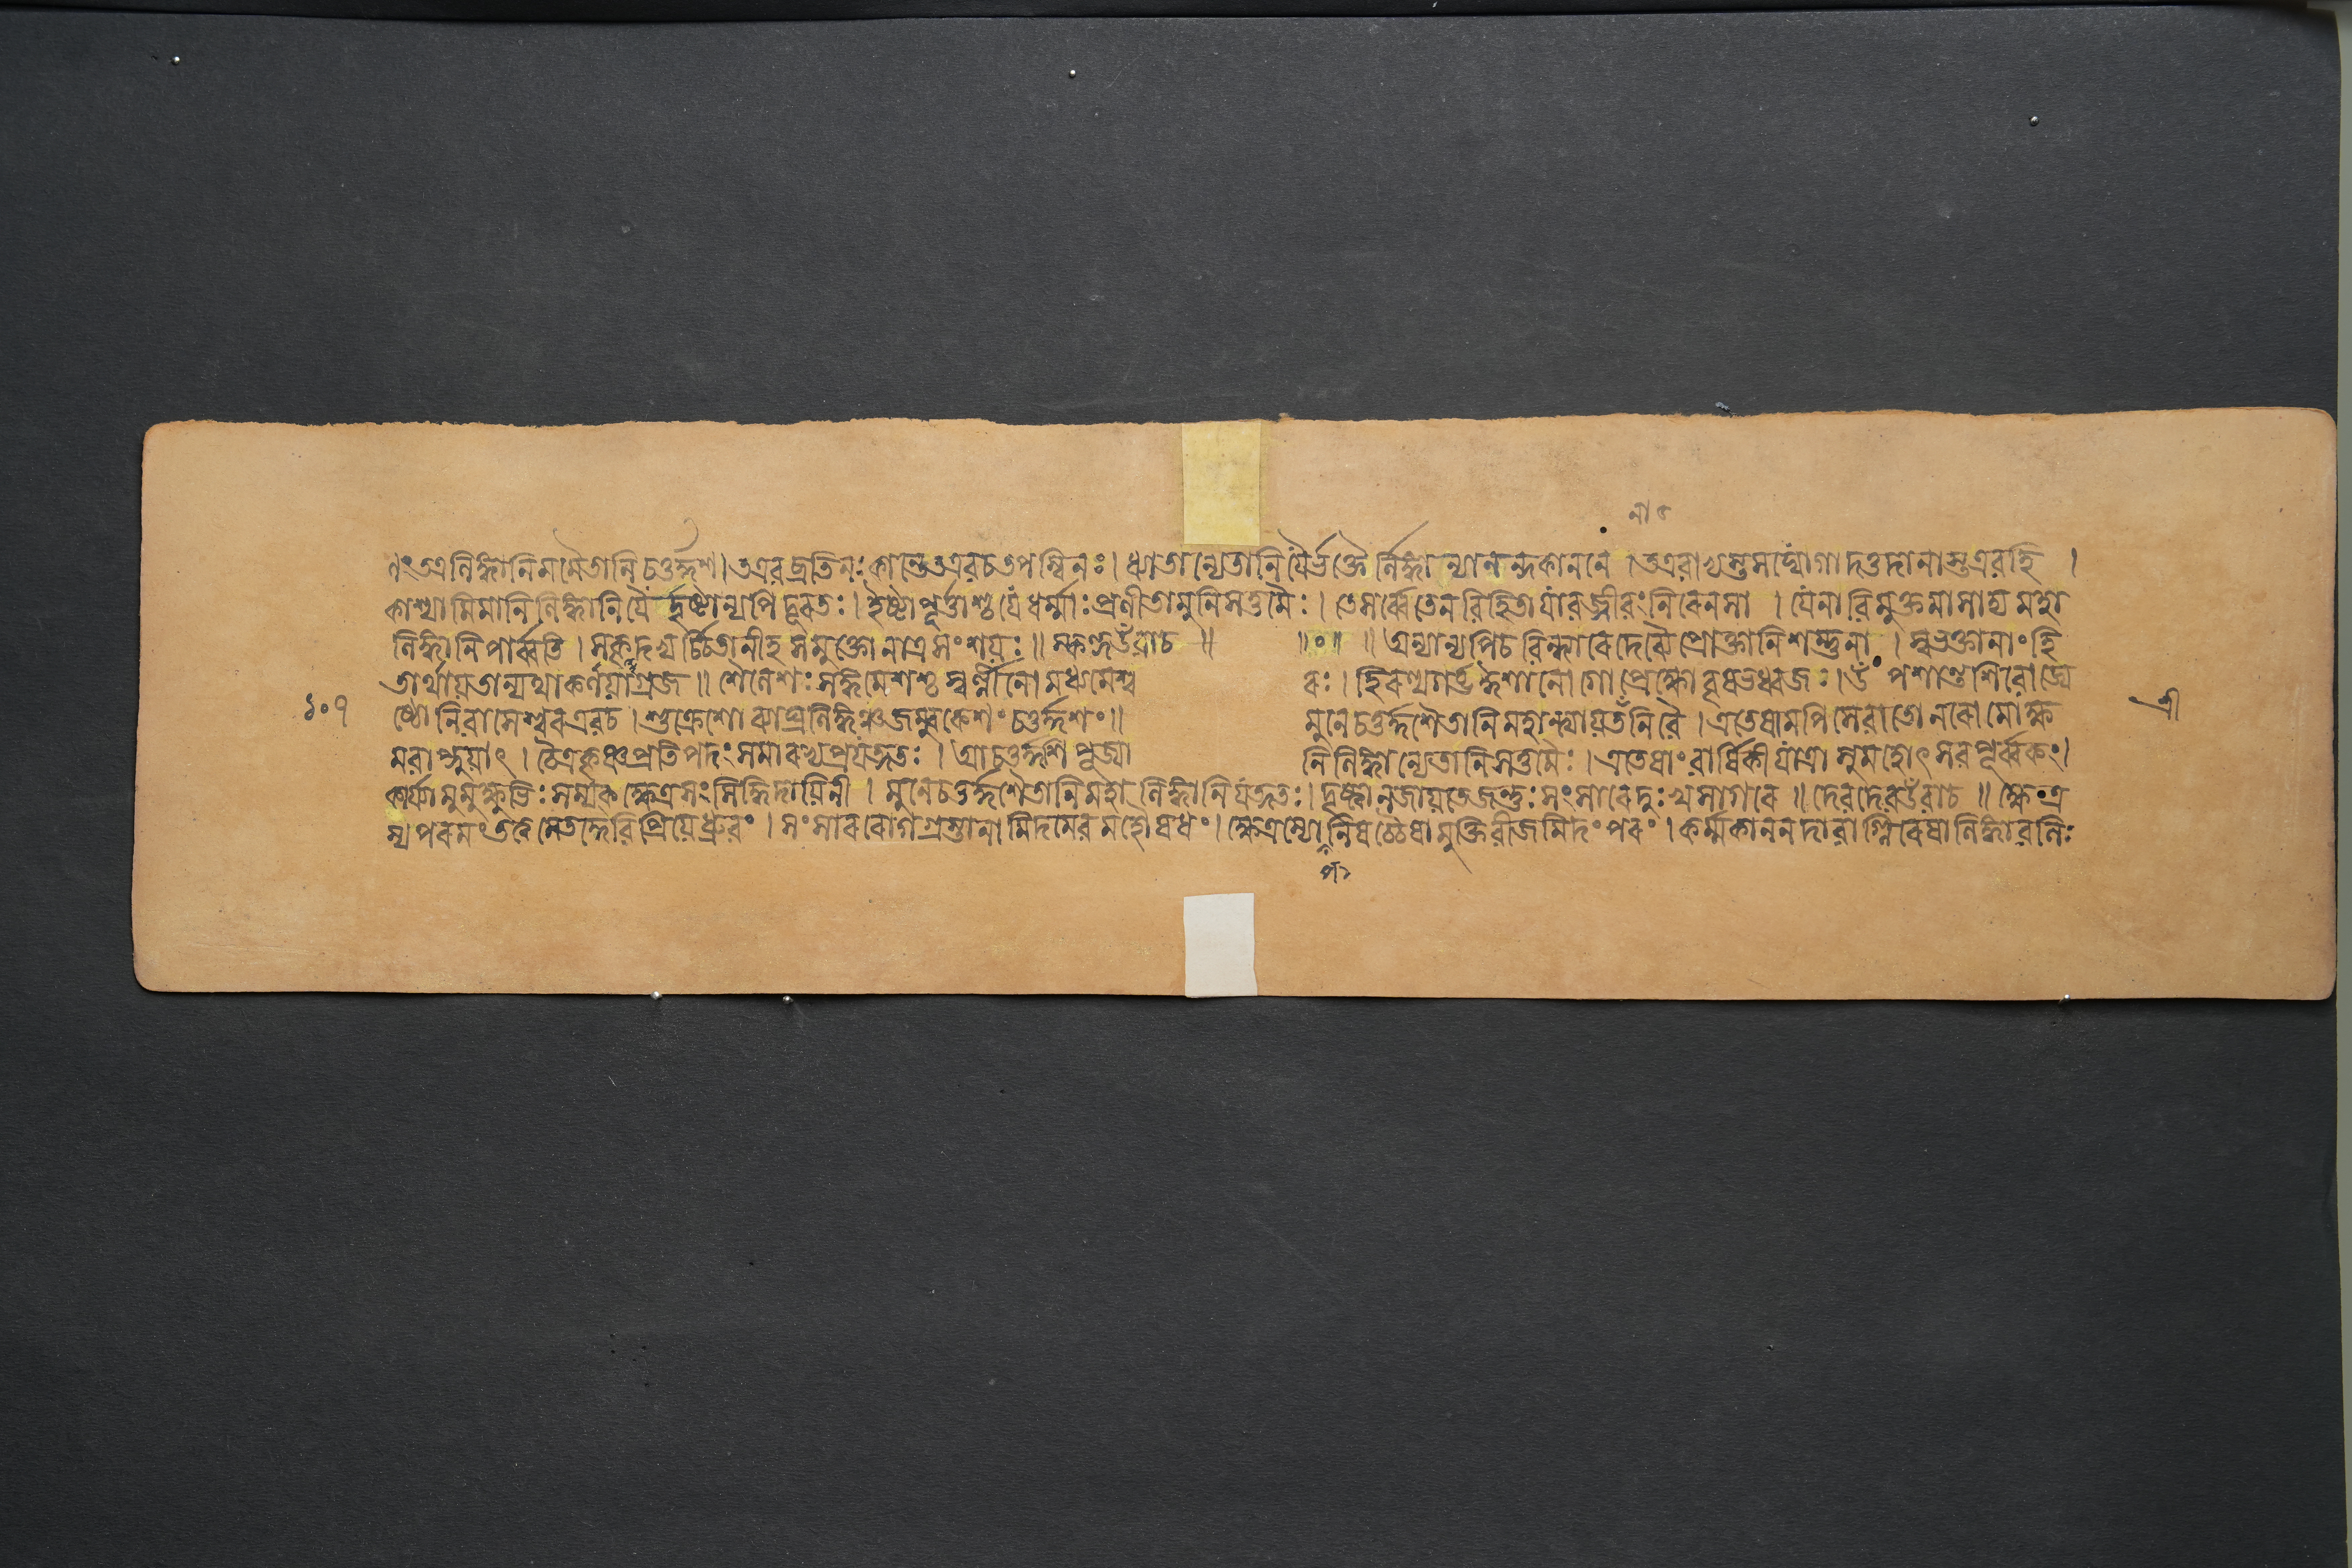 ণং অত্র লিঙ্গানি মমৈতানি চতুর্দ্দশ। ত এব ব্রতিনঃ কাশ্যাং ত এব চ তপস্বিনঃ। ধ্যাতান্যেতানি যৈর্ভক্তৈর্লিঙ্গান্যানন্দকাননে। ত এবাভ্যস্তসদ্যোগা দত্তদানাস্ত এব হি।
কাশ্যামিমানি লিঙ্গানি যৈর্দৃষ্টান্যপি দূৰতঃ। ইষ্টাপূর্ত্তাশ্চ যে ধর্ম্মাঃ প্রণীতা মুনিসত্তমৈঃ। তে সর্ব্বে তেন বিহিতা যাবজ্জীবং নিৰেনসা। যেনাবিমুক্তমাসাদ্য মহা
লিঙ্গানি পার্ব্বতি। সকৃদভ্যর্চ্চিতানীহ স মুক্তো নাত্র সংশয়ঃ॥ স্কন্দ উবাচ॥ ॥০॥ ॥ অন্যান্যপি চ বিন্ধ্যাৰে দেব্যৈ প্রোক্তানি শম্ভুনা। স্বভক্তানাং হি
তার্থায় তান্যথাকর্ণয়াগ্রজ॥ শৈলেশঃ সঙ্গমেশশ্চ স্বর্ল্লীনো মধ্যমেশ্বৰঃ। হিৰণ্যগর্ভ ঈশানো গোপ্রেক্ষো বৃষভধ্বজঃ। উপশান্তশিবো জ্যে
১০৭ ষ্ঠো নিবাসেশ্বৰ এব চ। শুক্রেশো ব্যাঘ্রলিঙ্গঞ্চ জম্বুকেশং চতুর্দ্দশং॥ মুনে চতুর্দ্দশৈতানি মহান্ত্যায়তনানি বৈ। এতেষামপি সেবাতো নৰো মোক্ষ শ্রী
মবাপ্নুয়াৎ। চৈত্রকৃষ্ণপ্রতিপদং সমাৰভ্য প্রযত্নতঃ। আ চতুর্দ্দশি পূজ্যানি লিঙ্গান্যেতানি সত্তমৈঃ। এতেষাং বার্ষিকী যাত্রা সুমহোৎসবপূর্ব্বকং।
কার্য্যা মুমুক্ষুভিঃ সম্যক ক্ষেত্রসংসিদ্ধিদায়িনী। মুনে চতুর্দ্দশৈতানি মহালিঙ্গানি যত্নতঃ। দৃষ্ট্বা ন জায়তে জন্তুঃ সংসাৰে দুঃখসাগৰে॥ দেবদেব উবাচ॥ ক্ষেত্র
স্য পৰমং তত্ত্বমেতদেবি প্রিয়ে ধ্রুবং। সংসাৰৰোগগ্রস্তানামিদমেব মহৌষধং। ক্ষেত্রস্যোপনিষচ্চৈষা মুক্তিবীজমিদং পৰং। কর্ম্মকাননদাবাগ্নিৰেষা লিঙ্গাবলিঃ